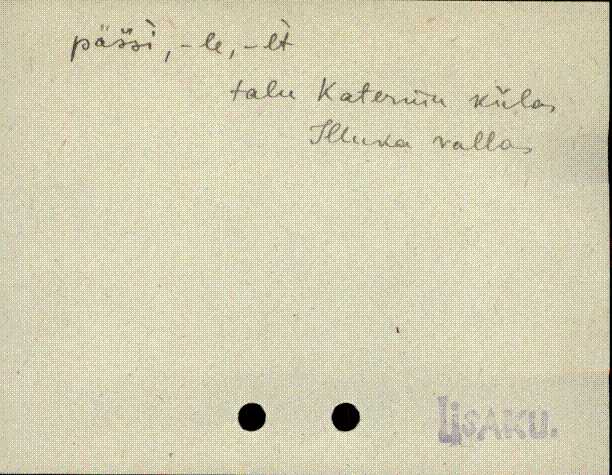 päs̀s̀i, -le, -lt
talu Katernin külas
Illuka vallas
IisAKU.